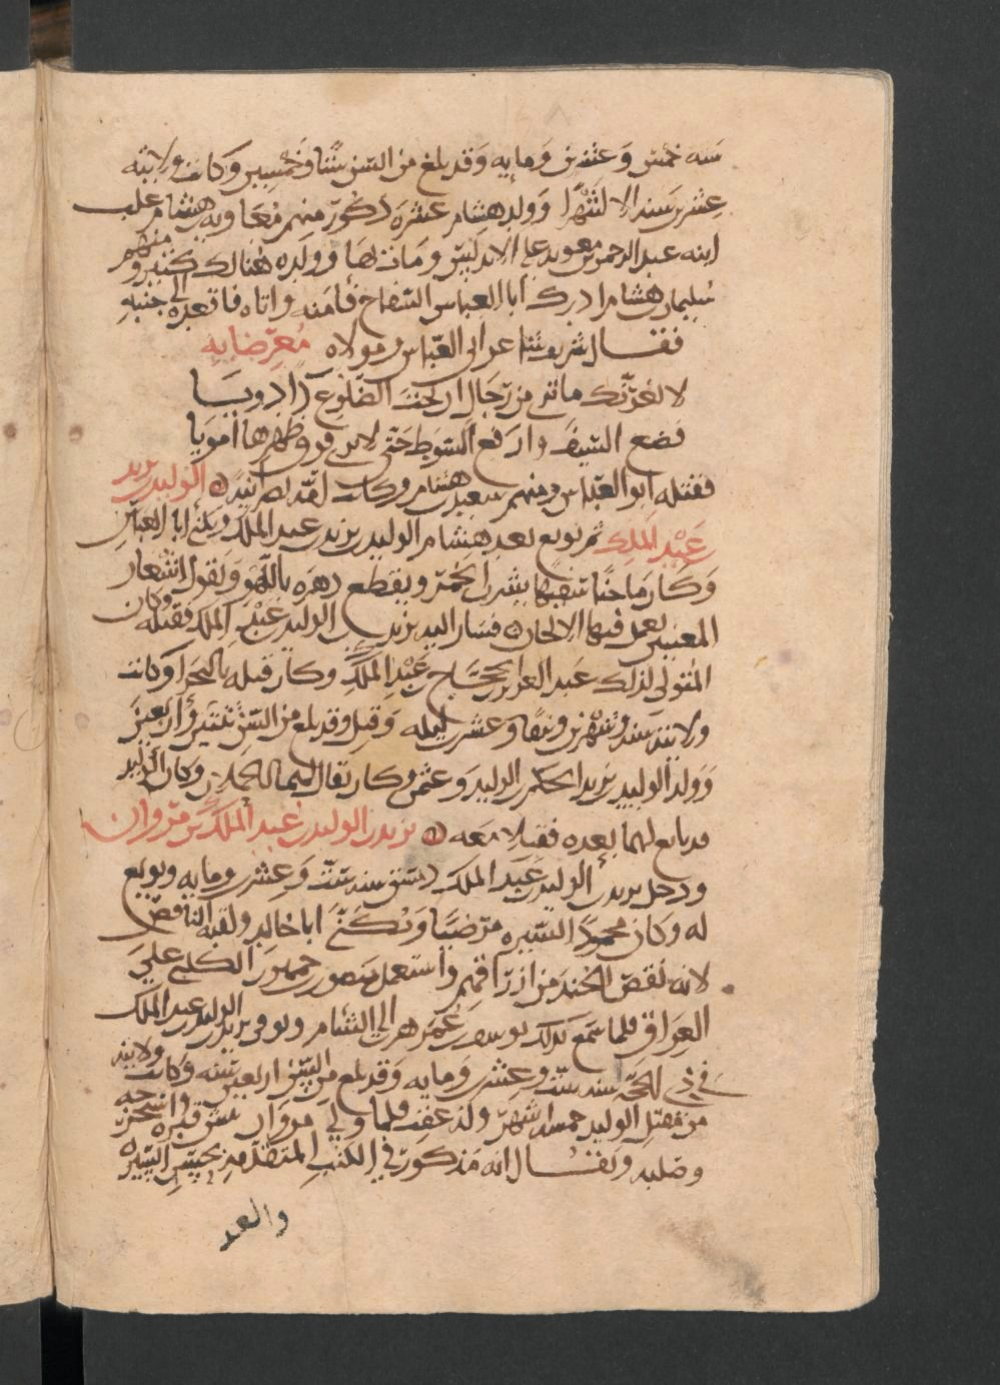 سنه خمس وعشرين ومايه وقد بلغ من السن ستا وخمسين وكانت ولايته
عشرين سنه الا شهرا وولد هشام عشرة ذكور منهم معاويه بن هشام غلب
ابنه عبد الرحمن بن معويه على الاندلس ومات بها وولده هنالك كثير ومنهم
سليمان بن هشام ادرك ابا العباس السفاح فامنه واتاه فاقعده الى جنبه
فقال شاعر ابي العباس ومولاه معرضا به
لا يغرنك ما ترى من رجال ان تحت الضلوع داء دويا
فضع السيف وارفع السوط حتى لا ترى فوق ظهرها امويا
فقتله ابو العباس ومنهم سعيد بن هشام وكانت امه نصرانيه الوليد بن يزيد
بن عبد الملك ثم بويع بعد هشام الوليد بن يزيد بن عبد الملك ويكنى ابا العباس
وكان ماجنا سفيها يشرب الخمر ويقطع دهره باللهو ويقول اشعار
المغنين يعمل فيها الالحان فسار اليه يزيد بن الوليد بن عبد الملك فقتله وكان
المتولى لذلك عبد العزيز بن الحجاج بن عبد الملك وكان قتله بالبخرا وكانت
ولايته سنه وشهرين ونيفا وعشرين ليله وقتل وقد بلغ من السن ثنتين واربعين
وولد الوليد بن يزيد الحكم بن الوليد وعثمن وكان يقال لهما الحملان وكان الوليد
قد بايع لهما بعده فقتلا معه يزيد بن الوليد بن عبد الملك بن مروان
ودخل يزيد بن الوليد بن عبد الملك دمشق سنه ست وعشرين ومايه وبويع
له وكان محمود السيره مرضيا ويكنى ابا خالد ولقبه الناقص
لانه نقص الجند من ارزاقهم واستعمل منصور بن جمهور الكلبي على
العراق فلما سمع بذلك يوسف بن عمر هرب الى الشام وتوفي يزيد بن الوليد بن عبد الملك
في ذي الحجه سنه ست وعشرين ومايه وقد بلغ من السن اربعين سنه وكانت ولايته
من مقتل الوليد خمسه اشهر وله عقب فلما ولي مروان نبش قبره واستخرجه
وصلبه ويقال انه مذكور في الكتب المتقدمه بحسن السيره
والعد